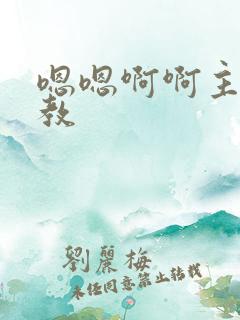 嗯嗯啊啊主
教
劉麗梅
未经同意禁止转载